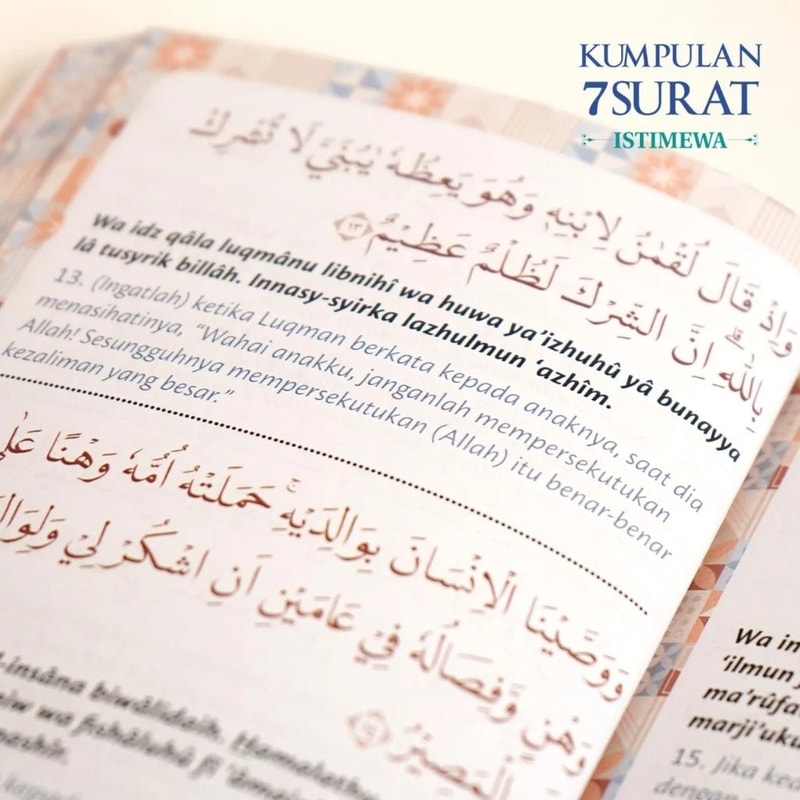 KUMPULAN
7SURAT
ISTIMEWA
وَاِذْ قَالَ لُقْمٰنُ لِابْنِهٖ وَهُوَ يَعِظُهٗ يٰبُنَيَّ لَا تُشْرِكْ
بِاللّٰهِ ۗاِنَّ الشِّرْكَ لَظُلْمٌ عَظِيْمٌ ١٣
Wa idz qâla luqmânu libnihî wa huwa ya'izhuhû yâ bunayya
lâ tusyrik billâh. Innasy-syirka lazhulmun 'azhîm.
13. (Ingatlah) ketika Luqman berkata kepada anaknya, saat dia
menasihatinya, "Wahai anakku, janganlah mempersekutukan
Allah! Sesungguhnya mempersekutukan (Allah) itu benar-benar
kezaliman yang besar."
وَوَصَّيْنَا الْاِنْسَانَ بِوَالِدَيْهِۚ حَمَلَتْهُ اُمُّهٗ وَهْنًا
وَهْنٍ وَّفِصَالُهٗ فِيْ عَامَيْنِ اَنِ اشْكُرْ لِيْ
الْمَصِيْرُ ١٤
-insâna biwâlidaih. Hamalathu
wa fishâluhû fî
Wa in
'ilmun
ma'rûfa
marji'uku
15. Jika keda
dengan